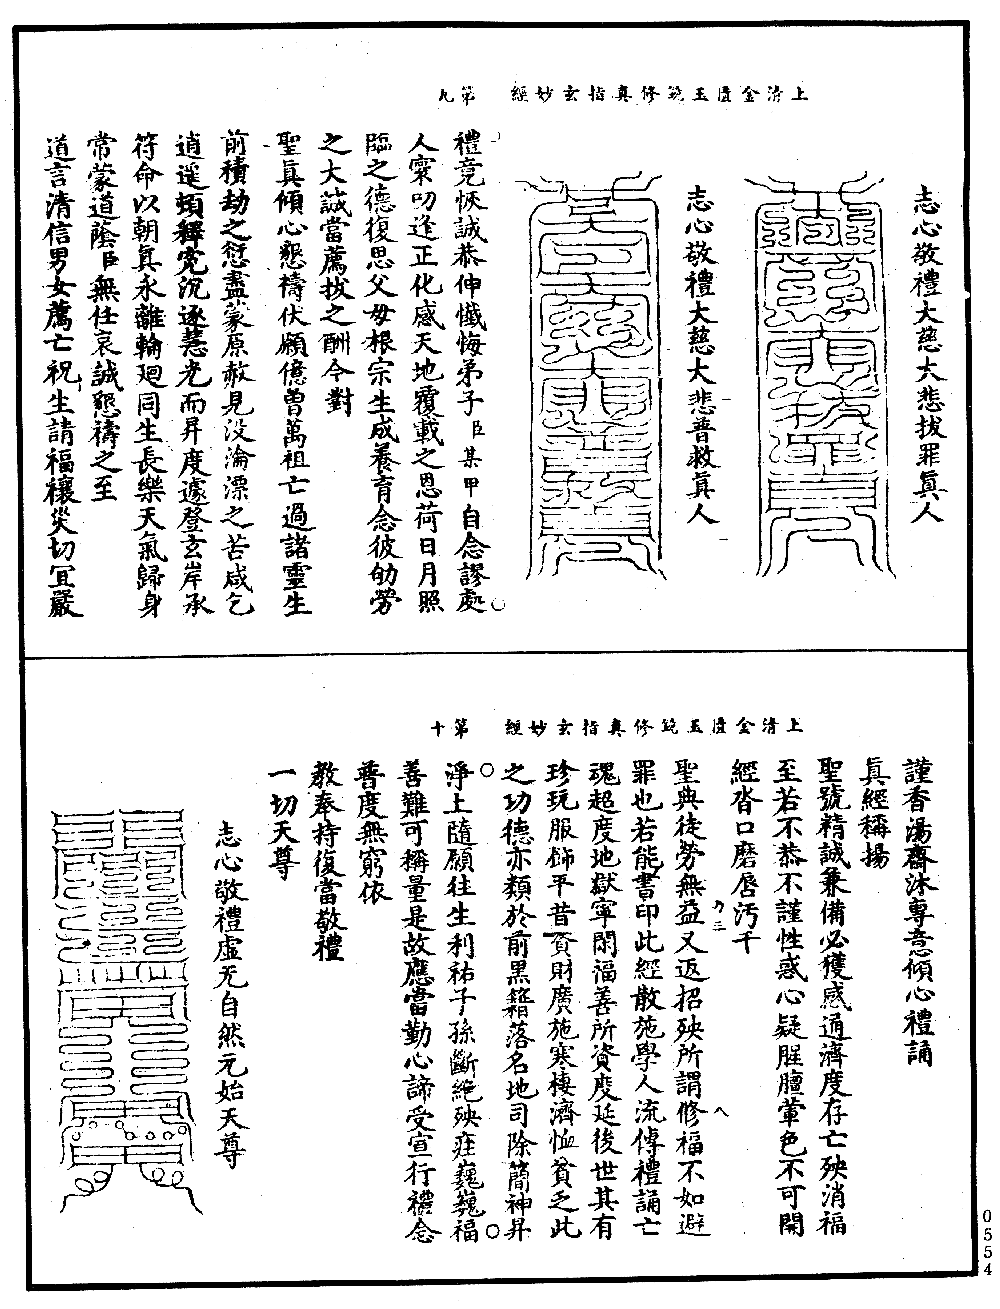 上清金匱玉鏡修真指玄妙經　第九
志心敬禮大慈大悲拔罪真人
志心敬禮大慈大悲普救真人
禮竟恢誠恭伸懺悔弟子臣某甲自念謬處
人寰叨逢正化感天地覆載之恩荷日月照
臨之德復思父母根宗生成養育念彼劬勞
之大誠當薦拔之酬今對
聖真傾心懇禱伏願億曾萬祖亡過諸靈生
前積劫之愆盡蒙原赦見沒淪漂之苦咸乞
逍遥頓釋冤沉逐慧光而昇度遽登玄岸承
符命以朝真永離輪廻同生長樂天氣歸身
常蒙道蔭臣無任哀誠懇禱之至
道言清信男女薦亡祝生請福禳災切宜嚴
上清金匱玉鏡修真指玄妙經　第十
謹香湯齋沐專意傾心禮誦
真經稱揚
聖號精誠兼備必獲感通濟度存亡殃消福
至若不恭不謹性惑心疑腥膻葷色不可開
經呇口磨唇汚干
聖典徒勞無益又返招殃所謂修福不如避
罪也若能書印此經散施學人流傳禮誦亡
魂超度地獄寧閑福善所資慶延後世其有
珍玩服飾平昔資財廣施寒棲濟恤貧乏此
之功德亦類於前黑籍落名地司除簡神昇
淨土隨願往生利祐子孫斷絶殃疰巍巍福
善難可稱量是故應當勤心諦受宣行禮念
普度無窮依
教奉持復當敬禮
一切天尊
志心敬禮虛无自然元始天尊
0554